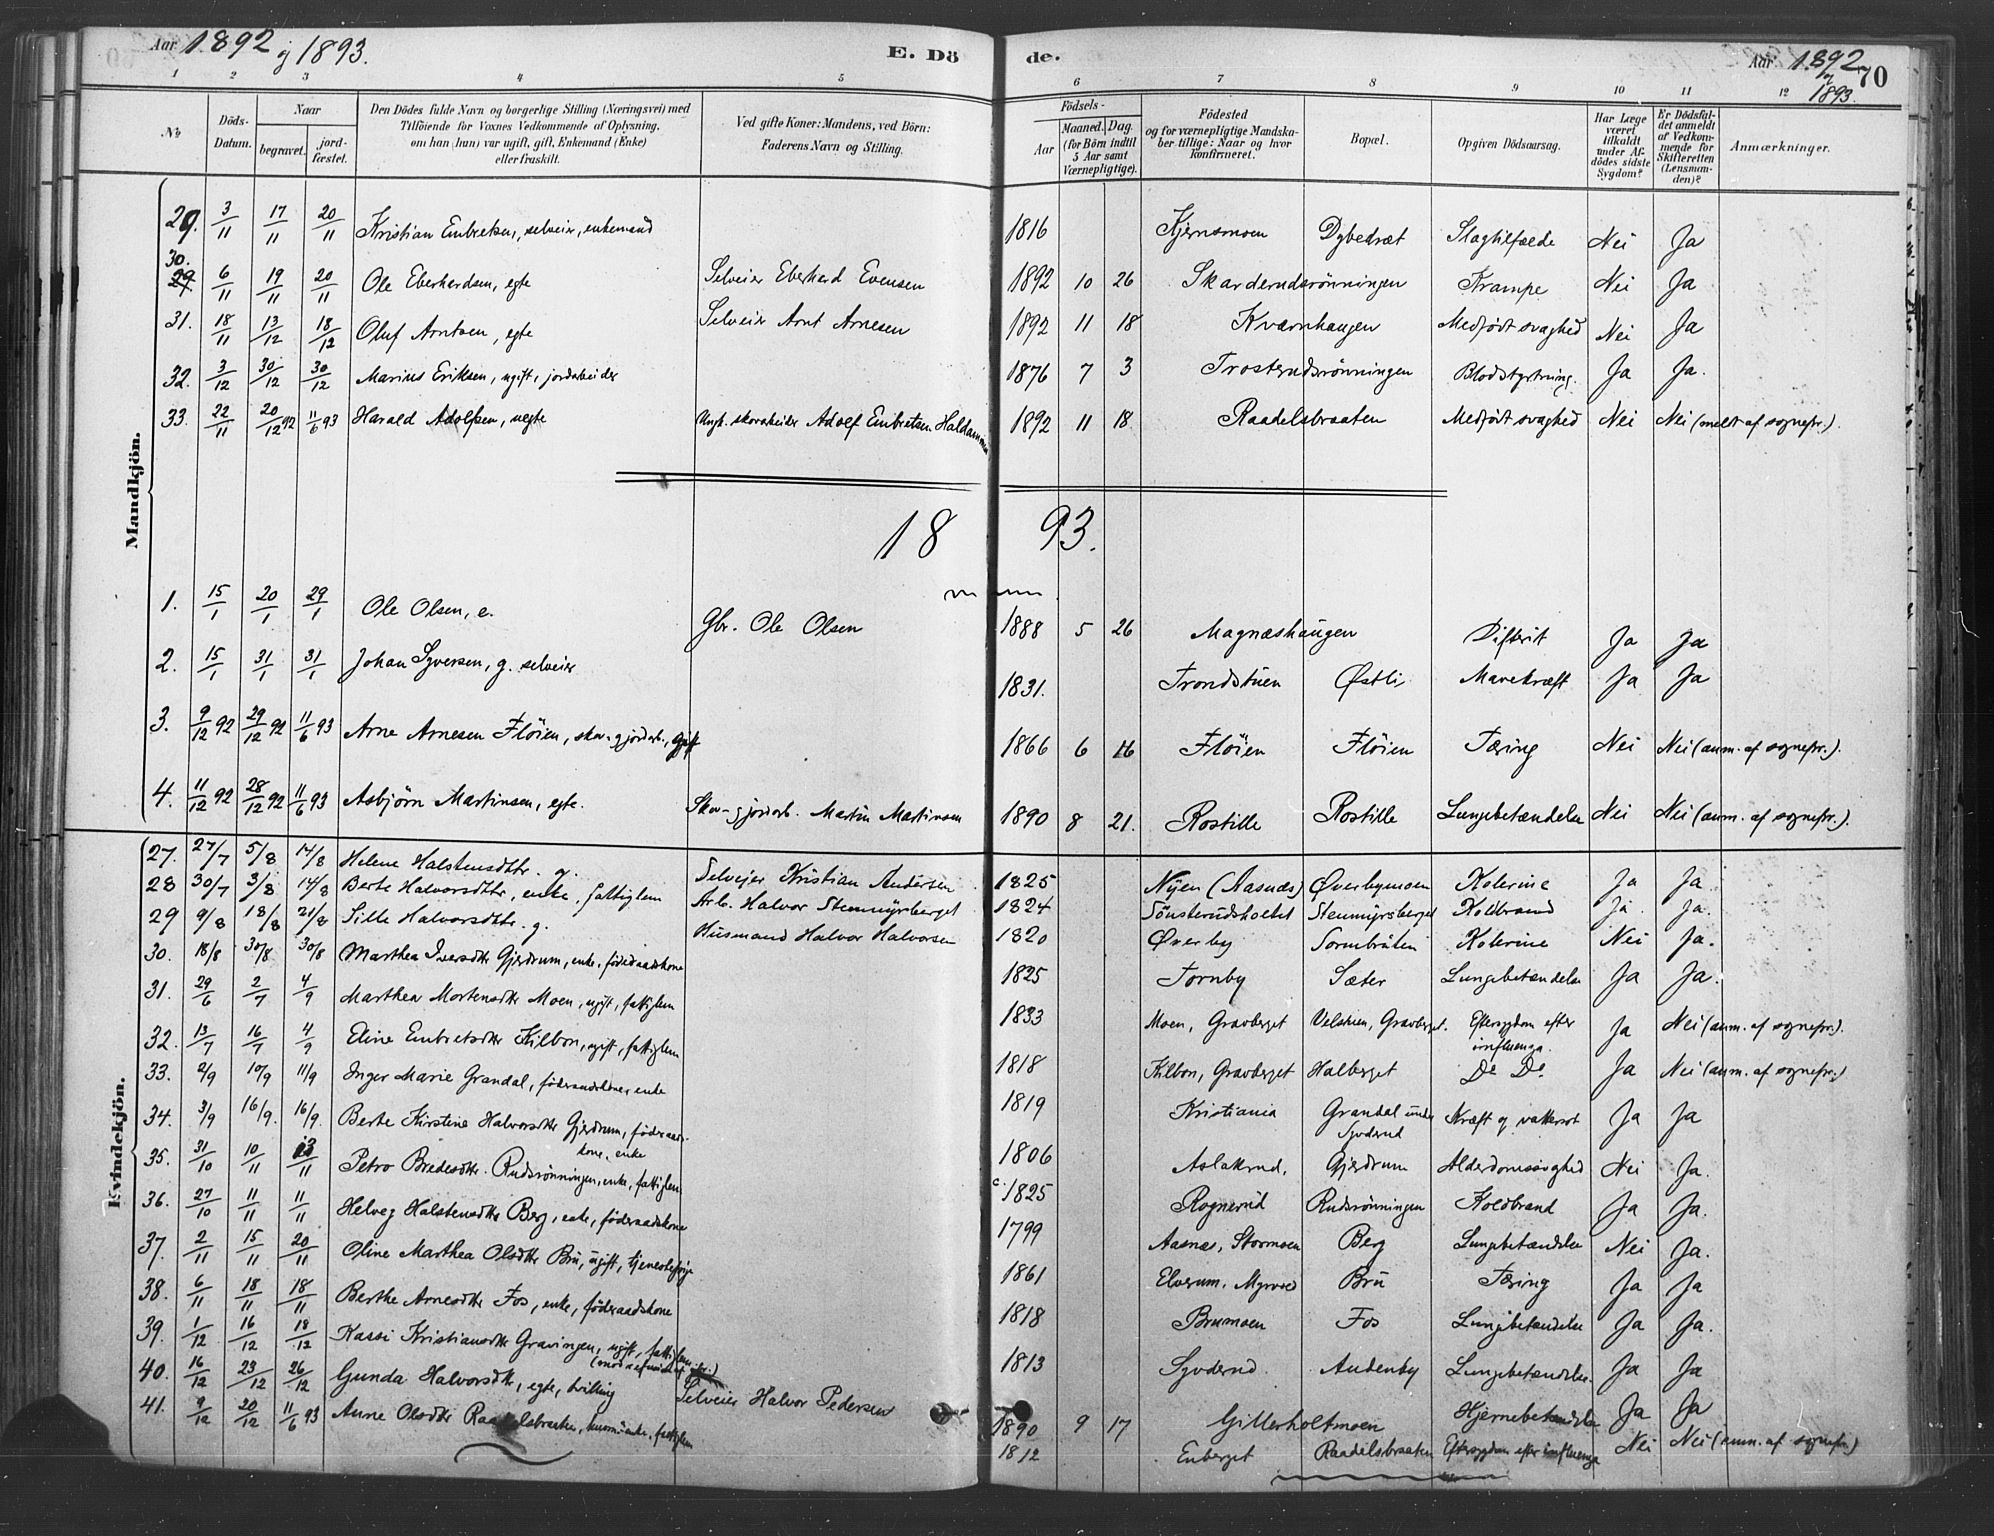 Aar 1892 og 1893.
E. Dö
de.
Aar 1892 og 1893.
70
1 2 3 4 5 6 7 8 9 10 11 12
No
Döds-Datum.
Naar
begravet.
jordfæstet.
Den Dödes fulde Navn og borgerlige Stilling (Næringsvei) med
Tilföiende for Voxnes Vedkommende af Oplysning,
om han (hun) var ugift, gift, Enkemand (Enke)
eller fraskilt.
Ved gifte Koner: Mandens, ved Börn:
Faderens Navn og Stilling.
Födsels-
Aar
Maaned. Dag.
(for Börn indtil
5 Aar samt
Værnepligtige).
Födested
og for værnepligtige Mandska-
ber tillige: Naar og hvor
konfirmeret.
Bopæl.
Opgiven Dödsaarsag.
Har Læge
været
tilkaldt
under Af-
dödes sidste
Sygdom?
Er Dödsfal-
det anmeldt
af Vedkom-
mende for
Skifteretten
(Lensman-
den)?
Anmærkninger.
Mandkjön.
29. 3/11 17/11 20/11 Kristian Embretsen, selveier, enkemand 1816 Kjernsmoen Dybedræt Slagtilfælde Nei Ja
30. 29. 6/11 19/11 20/11 Ole Eberhardsen, egte Selveier Eberhard Evensen 1892 10 26 Skarderudsrønningen Krampe Nei Ja
31. 18/11 13/12 18/12 Oluf Arntsen, egte Selveier Arnt Arnesen 1892 11 18 Kværnhaugen Medfødt svaghed Nei Ja
32. 3/12 30/12 30/12 Marius Eriksen, ugift, jordarbeider 1876 7 3 Trosterudsrønningen Blodstyrtning. Ja Ja.
33. 22/11 20/12 92 11/6 93 Harald Adolfsen, uegte Ungk. skovarbeider Adolf Embretsen 1892 11 18 Raadelsbraaten Medfødt svaghed Nei Nei (meldt af sognepr.).
18 93.
1. 15/1 20/1 29/1 Ole Olsen, e. Gbr. Ole Olsen 1888 5 26 Magnæshaugen Difterit Ja Ja
2. 15/1 31/1 31/1 Johan Syversen, g. selveier 1831. Trondstuen Østli Mavekræft Ja Ja
3. 9/12 92 29/12 92 11/6 93 Arne Arnesen Fløien, skov- og jordarb., gift 1866 6 16 Fløien Fløien Tæring Nei Nei (anm. af sognepr.).
4. 11/12 92 28/12 92 11/6 93 Asbjørn Martinsen, egte. Skov- og jordarb. Martin Martinsen 1890 8 21. Rostille Rostille Lungebetændelse Nei Nei (anm. af sognepr.).
Kvindekjön.
27. 27/7 5/8 14/8 Helene Halstensdttr. g. Selveier Kristian Andersen 1825 Nyen (Aasnæs) Øverbymoen Kolerine Ja Ja.
28 30/7 3/8 14/8 Berte Halvorsdttr, enke. fattiglem Arb. Halvor Stenmyrsberget 1824 Sönsterudsholtet Stenmyrsberget Koldbrand Ja Ja.
29 9/8 18/8 21/8 Sille Halvorsdttr. g. Husmand Halvor Halvorsen 1820 Øverby Sormbråten Kolerine Nei Ja.
30. 18/8 30/8 30/8 Marthea Iversdtr Gjerdrum, enke, föderaadskone 1825 Tornby Sæter Lungebetændelse Ja Ja.
31. 29/6 2/7 4/9 Marthea Mortensdtr Moen, ugift, fattiglem 1833 Moen, Gravberget Gravberget. Eftersygdom efter influenza. Ja Nei (anm. af sognepr.).
32. 13/7 16/7 4/9 Eline Embretsdtr Kilbon, ugift, fattiglem 1818 Kilbon, Gravberget Halberget Do Do Ja Nei (anm. af sognepr.)
33. 2/9 10/9 11/9 Inger Marie Grandal, föderaadskone, enke 1819 Kristiania Grandal under Syverud Kræft og vattersot Ja Ja
34. 3/9 16/9. 16/9. Berte Kirstine Halvorsdtr Gjerdrum, föderaadskone, enke 1806 Aslakrud, Gjerdrum Alderdomssvaghed Nei Ja.
35. 31/10 10/11 13/11 Petro Bredesdtr. Rudsrönningen, enke, fattiglem c. 1825 Rognerud Rudsrönningen Koldbrand Ja Ja.
36. 27/10 11/11 11/11 Helveg Halstensdtr Berg, enke, föderaadskone 1799 Aasnæs, Stormoen Berg Lungebetændelse Nei Ja.
37. 2/11 15/11 20/11 Oline Marthea Olsdtr Bru, ugift, tjenestepige 1861 Elverum, Bru Tæring Ja Ja
38. 6/11 18/11 18/11 Berthe Arnesdtr Fos, enke, föderaadskone 1818 Brumoen Fos Lungebetændelse Ja Ja.
39. 1/12 16/12 18/12 Kassi Kristiansdtr Gravingen, ugift, fattiglem 1813 Syverud Audenby Lungebetændelse. Ja Ja
40. 16/12 23/12 26/12 Gunda Halvorsdtr, egte, tvilling Selveier Halvor Pedersen 1890 9 17 Gitterholtmoen Hjernebetændelse Ja Ja
41. 9/12 20/12 11/6 93 Anne Olsdtr Raadelsbraaten, fattiglem 1812 Enberget Raadelsbraaten Eftersygdom efter influenza Nei Nei (anm. af sognepr.)